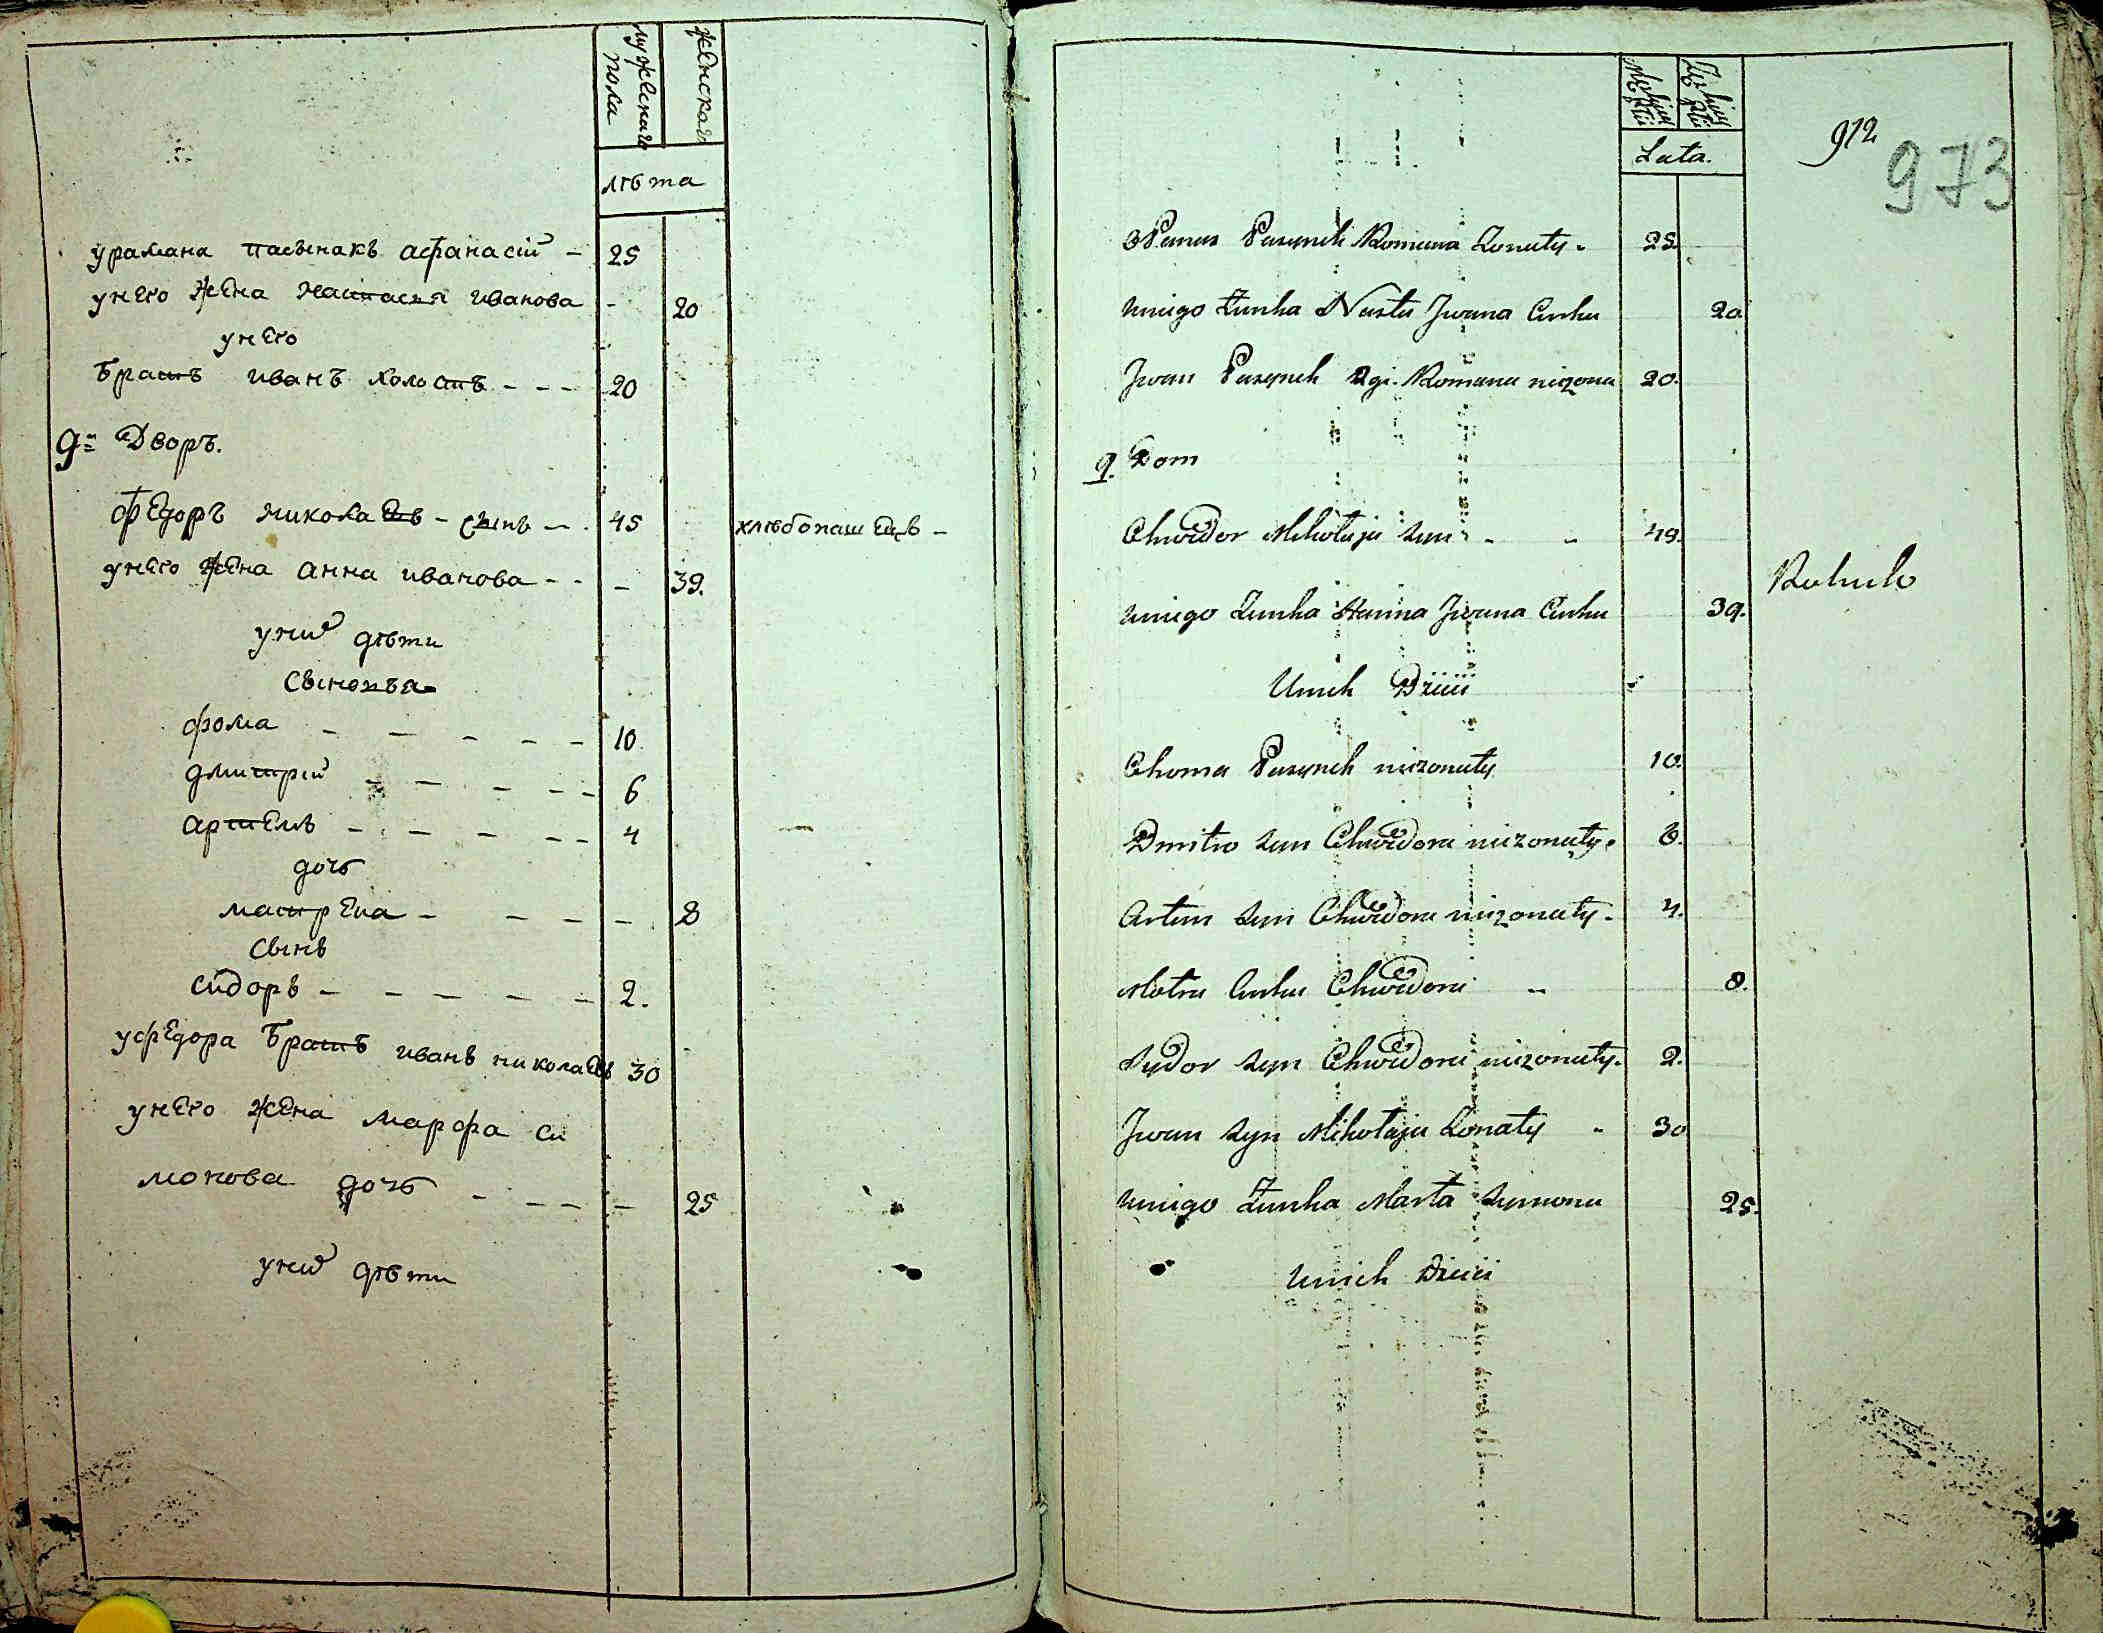 мужескаго пола
женскаго
лѣта
урамана пасынакъ афанасій – 25
унего жена настасья иванова – 20
унего
братъ иванъ холостъ – – – 20
9й Дворъ.
федоръ миколаевъ – сынъ – 45 хлѣбопашецъ –
унего жена анна иванова – – – 39.
унихъ дѣти
сыновья
фома – – – – – 10
дмитрій – – – – – 6
артемъ – – – – – – 4
дочь
матрена – – – – – 8
сынъ
сидоръ – – – – – 2.
уфедора братъ иванъ николаевъ 30
унего жена марфа си
монова дочь – – – – 25
унихъ дѣти
Lata.
912
973
OPanas Pasynek Romana Zonaty. 25.
uniego Zunka Nasta Jwana Curka 20
Jwan Pasynek 2gi. Romana niezona 20.
9. Dom
Chwedor Mikołaja syn - - 49.
Rolnik
uniego Zunka Hanna Jwana Curka 39.
Unich Dzieci
Choma Pasynek niezonaty 10.
Dmitro syn Chwedora niezonaty. 6.
Artem syn Chwedora niezonaty. 4.
Motra Curka Chwedora - 8.
Sydor syn Chwedora niezonaty. 2.
Jwan syn Mikołaja Zonaty - 30
uniego Zunka Marta Symona 25.
Unich Dzieci